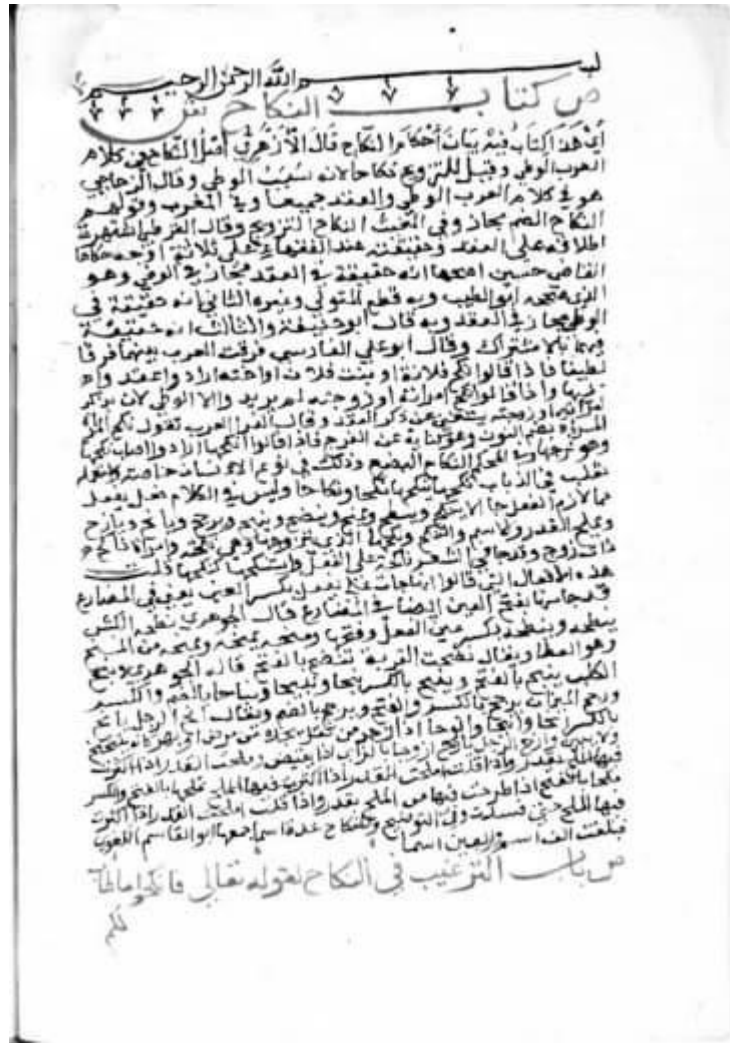 بسم الله الرحمن الرحيم
ص كتاب النكاح ش
أي هذا كتاب فيه بيان أحكام النكاح قال الأزهري أصل النكاح في كلام
العرب الوطي وقيل للتزويج نكاحا لانه سبب الوطي وقال الزجاجي
هو في كلام العرب الوطي والعقد جميعا وفي المغرب وقولهم
النكاح الضم مجاز وفي النكاح التزويج وقال القرطبي اشتهر
اطلاقه على العقد وحقيقته عند الفقهاء على ثلاثة اوجه حكاها
القاضي حسين اصحها انه حقيقة في العقد مجاز في الوطي وهو
الذي صححه ابو الطيب وبه قطع المتولي وغيره الثاني انه حقيقة في
الوطي مجاز في العقد وبه قال ابو حنيفة والثالث انه حقيقة
فيهما بالاشتراك وقال ابو علي الفارسي فرقت العرب بينهما فرقا
لطيفا فاذا قالوا نكح فلانة او بنت فلان او اخته ارادوا عقد
واذا قالوا نكح امراته او زوجته لم يريدوا الا الوطي لان بذكر
امراته او زوجته يستغني عن ذكر العقد وقال الفرا العرب تقول نكح
المرأة بضم النون وهو كناية عن الفرج فاذا قالوا نكحها ارادوا اصاب نكحها
وهو فرجها وفي المحكم النكاح البضع وذلك في نوع الانسان خاصة
ثعلب في الذباب نكحها ينكحها نكحا ونكاحا وليس في الكلام فعل يفعل
مما لام الفعل حا الا ينكح وينطح ويمنح وينضح وينبح ويرجح ويانح ويازح
ويملح القدر والاسم
ذات زوج وقد جا في الشعر ناكحة على الفعل واستنكحها كنكحها قلت
هذه الافعال التي قالوا انها جات على يفعل بكسر العين يعني في المضارع
قد جا منها بفتح العين ايضا في المضارع قال الجوهري نطحه الكبش
ينطحه وينطحه بكسر عين الفعل وفتحها ومنحه يمنحه ويمنحه من المنح
وهو العطا ويقال نضحت القربة تنضح بالفتح قاله الجوهري ونبح
الكلب ينبح بالفتح وينبح بالكسر نبحا ونبيحا ونباحا بالضم والكسر
ورجح الميزان يرجح بالكسر والفتح ويرجح بالضم ويقال انح الرجل يانح
بالكسر انحا وانيحا وانوحا اذا زحر من ثقل يجده من مرض او بهر كانه يتنحنح
ولا يبين وازح الرجل يازح ازوحا بالزاي اذا تقبض وملحت القدر اذا
ملحا بالفتح اذا طرحت فيها من الملح بقدر واذا قلت املحت القدر اذا اكثرت
فيها الملح حتى فسدت وفي التوضيح وللنكاح عدة اسما جمعها ابو القاسم اللغوي
فبلغت الف اسم واربعين اسما
ص باب الترغيب في النكاح لقوله تعالى فانكحوا ما طاب
لكم